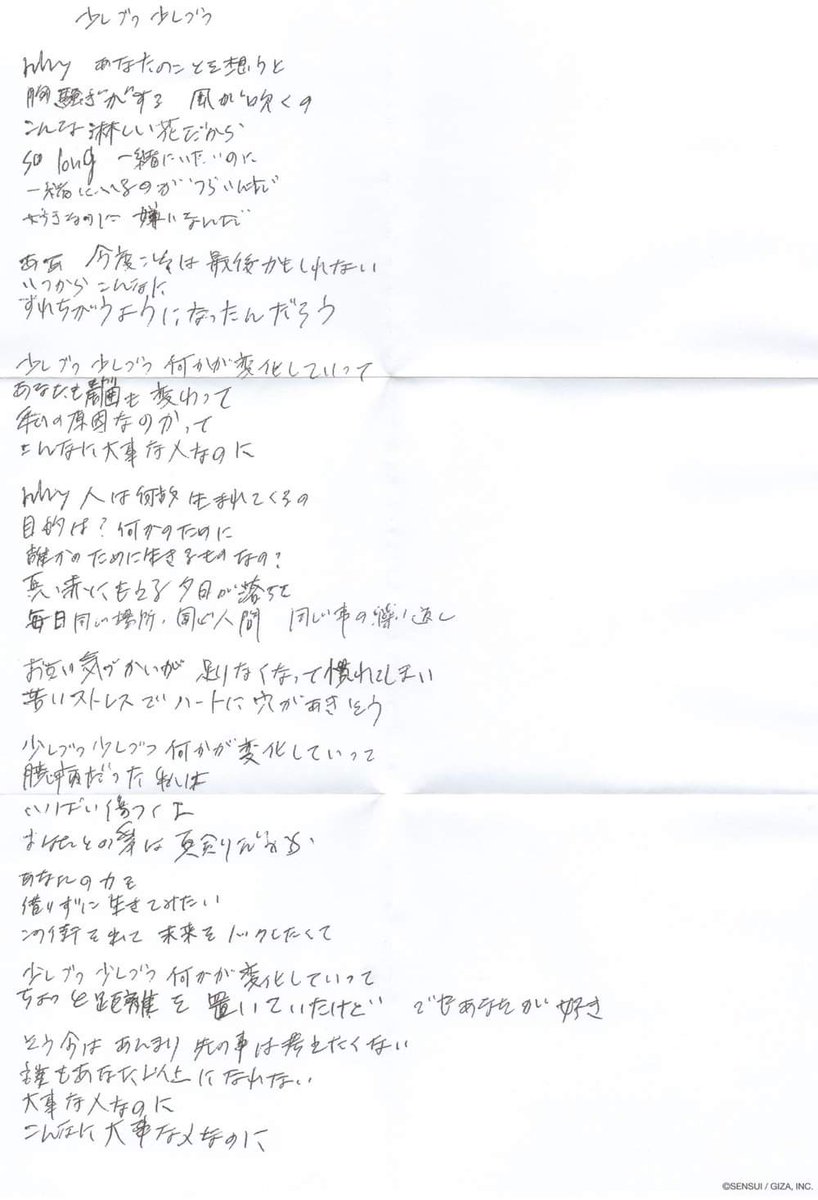 少しづつ 少しづつ
why あなたのことを想うと
胸騒ぎがする 風が吹くの
こんな淋しい花だから
so long 一緒にいたいのに
一緒にいるのがつらいんだ
好きなのに 嫌いなんだ
ああ 今度こそは最後かもしれない
いつからこんなに
ずれちがうようになったんだろう
少しづつ 少しづつ 何かが変化していって
あなたも 私も 変わって
私の原因なのかって
こんなに大事な人なのに
why 人は何故 生まれてくるの
目的は? 何かのために
誰かのために生きるものなの?
真っ赤にもえる 夕日が落ちて
毎日同じ場所、同じ人間 同じ事の繰り返し
お互い気づかいが 足りなくなって慣れてしまい
苦いストレスでハートに穴があきそう
少しづつ 少しづつ 何かが変化していって
臆病だった 私は
いっぱい傷つくよ
あなたとの愛は
あなたの力を
借りずに生きてみたい
この街を出て 未来をノックしたくて
少しづつ 少しづつ 何かが変化していって
ちょっと距離を 置いていたけど でもあなたが好き
そう今は あんまり 先の事は考えたくない
誰もあなた以上になれない
大事な人なのに
こんなに大事な人なのに
©SENSUI / GIZA, INC.